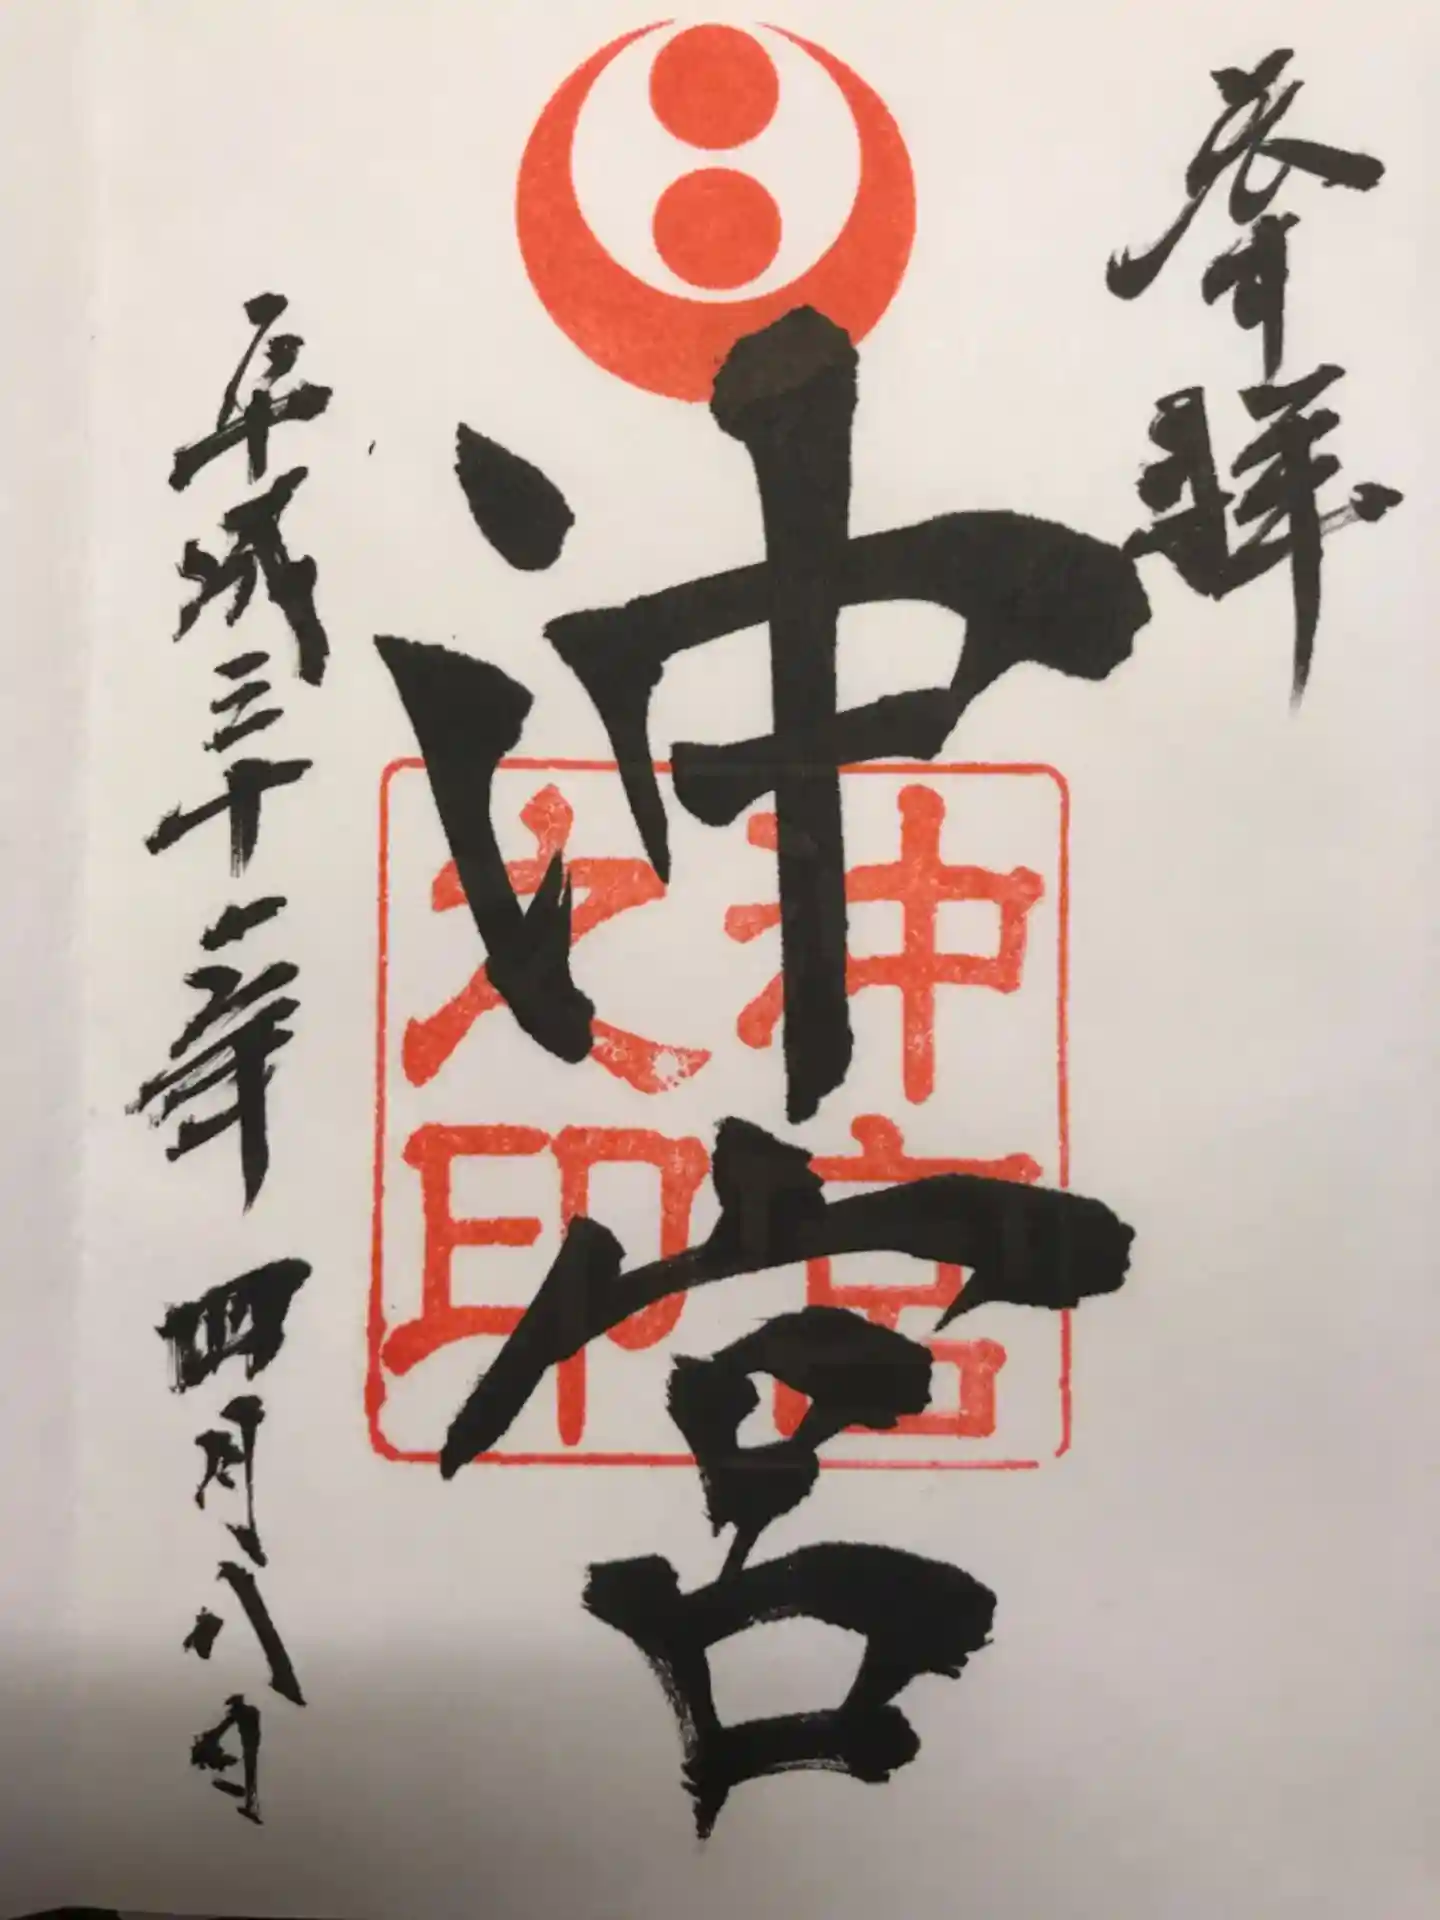 奉拜
沖宮
沖宮
之印
平成三十一年四月八日